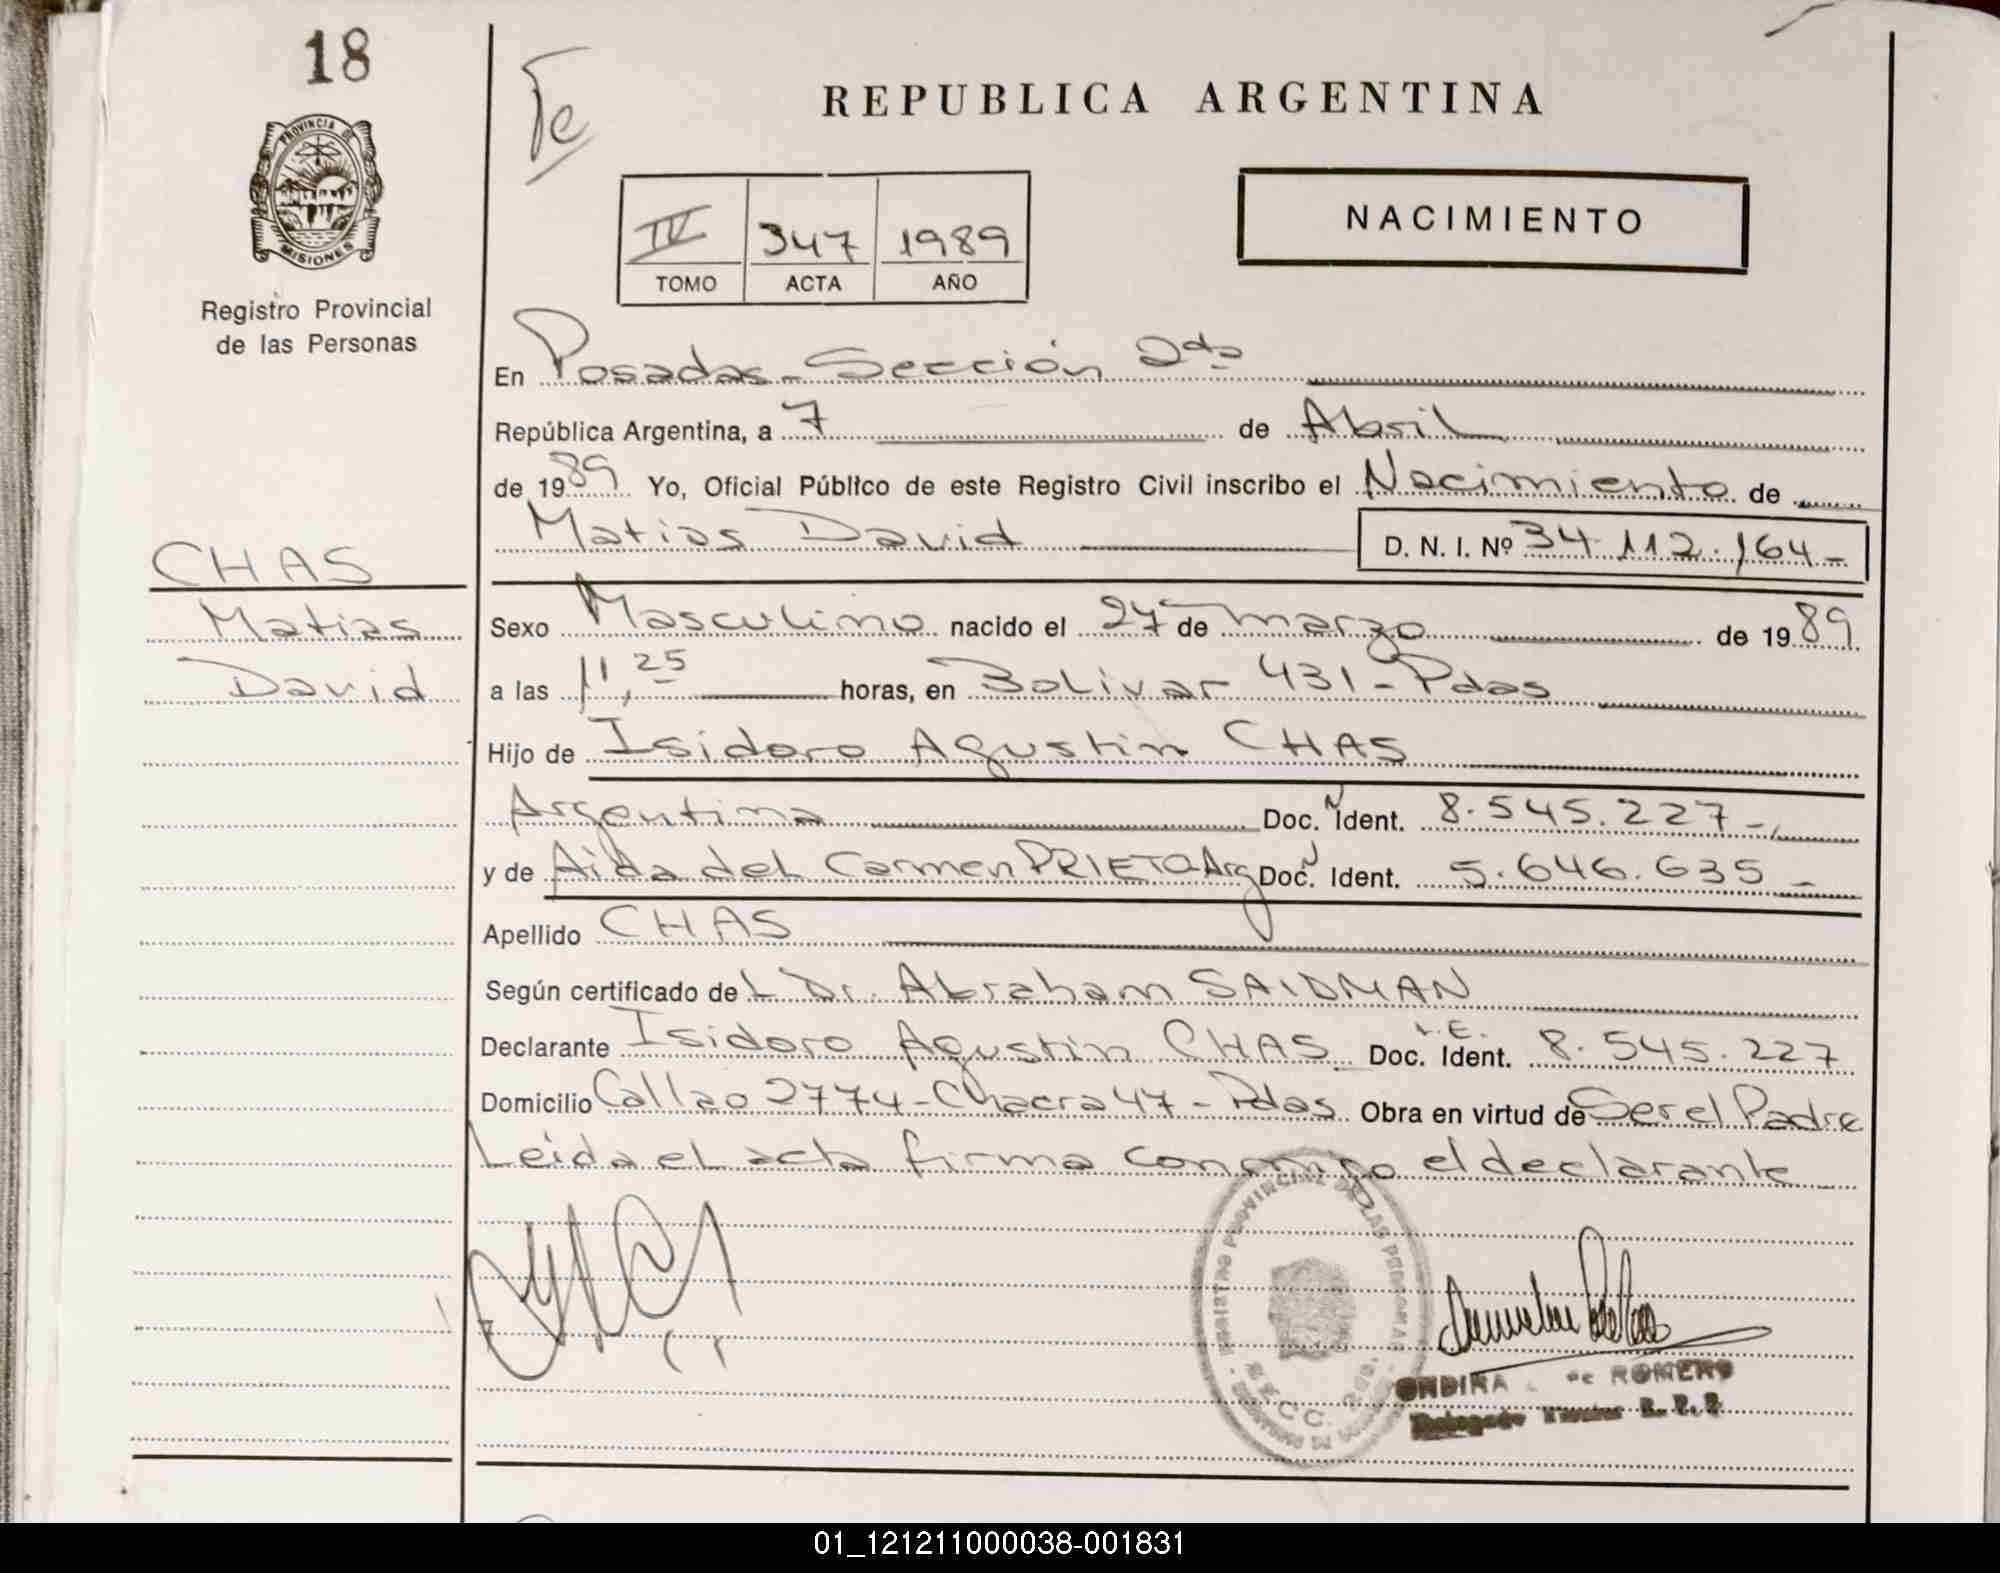 18
PROVINCIA DE
MISIONES
Registro Provincial
de las Personas
REPUBLICA ARGENTINA
NACIMIENTO
IV 347 1989
TOMO ACTA AÑO
En Posadas - Sección 2da
República Argentina, a 7 de Abril
de 1989 Yo, Oficial Público de este Registro Civil inscribo el Nacimiento de
Matias David D. N. I. Nº 34.112.164-
CHAS
Matias
David
Sexo Masculino nacido el 27 de marzo de 1989
a las 11,25 horas, en Bolivar 431 - Pdas
Hijo de Isidoro Agustin CHAS
Argentina Doc. Ident. 8.545.227-
y de Aida del Carmen PRIETO-Arg Doc. Ident. 5.646.635-
Apellido CHAS
Según certificado del Dr. Abraham SAIDMAN
Declarante Isidoro Agustin CHAS Doc. L.E. Ident. 8.545.227
Domicilio Callao 2774 - Chacra 47 - Pdas Obra en virtud de Ser el Padre
Leida el acta firma conmigo el declarante
REGISTRO PROVINCIAL DE LAS PERSONAS
ONDINA de ROMERO
01_121211000038-001831